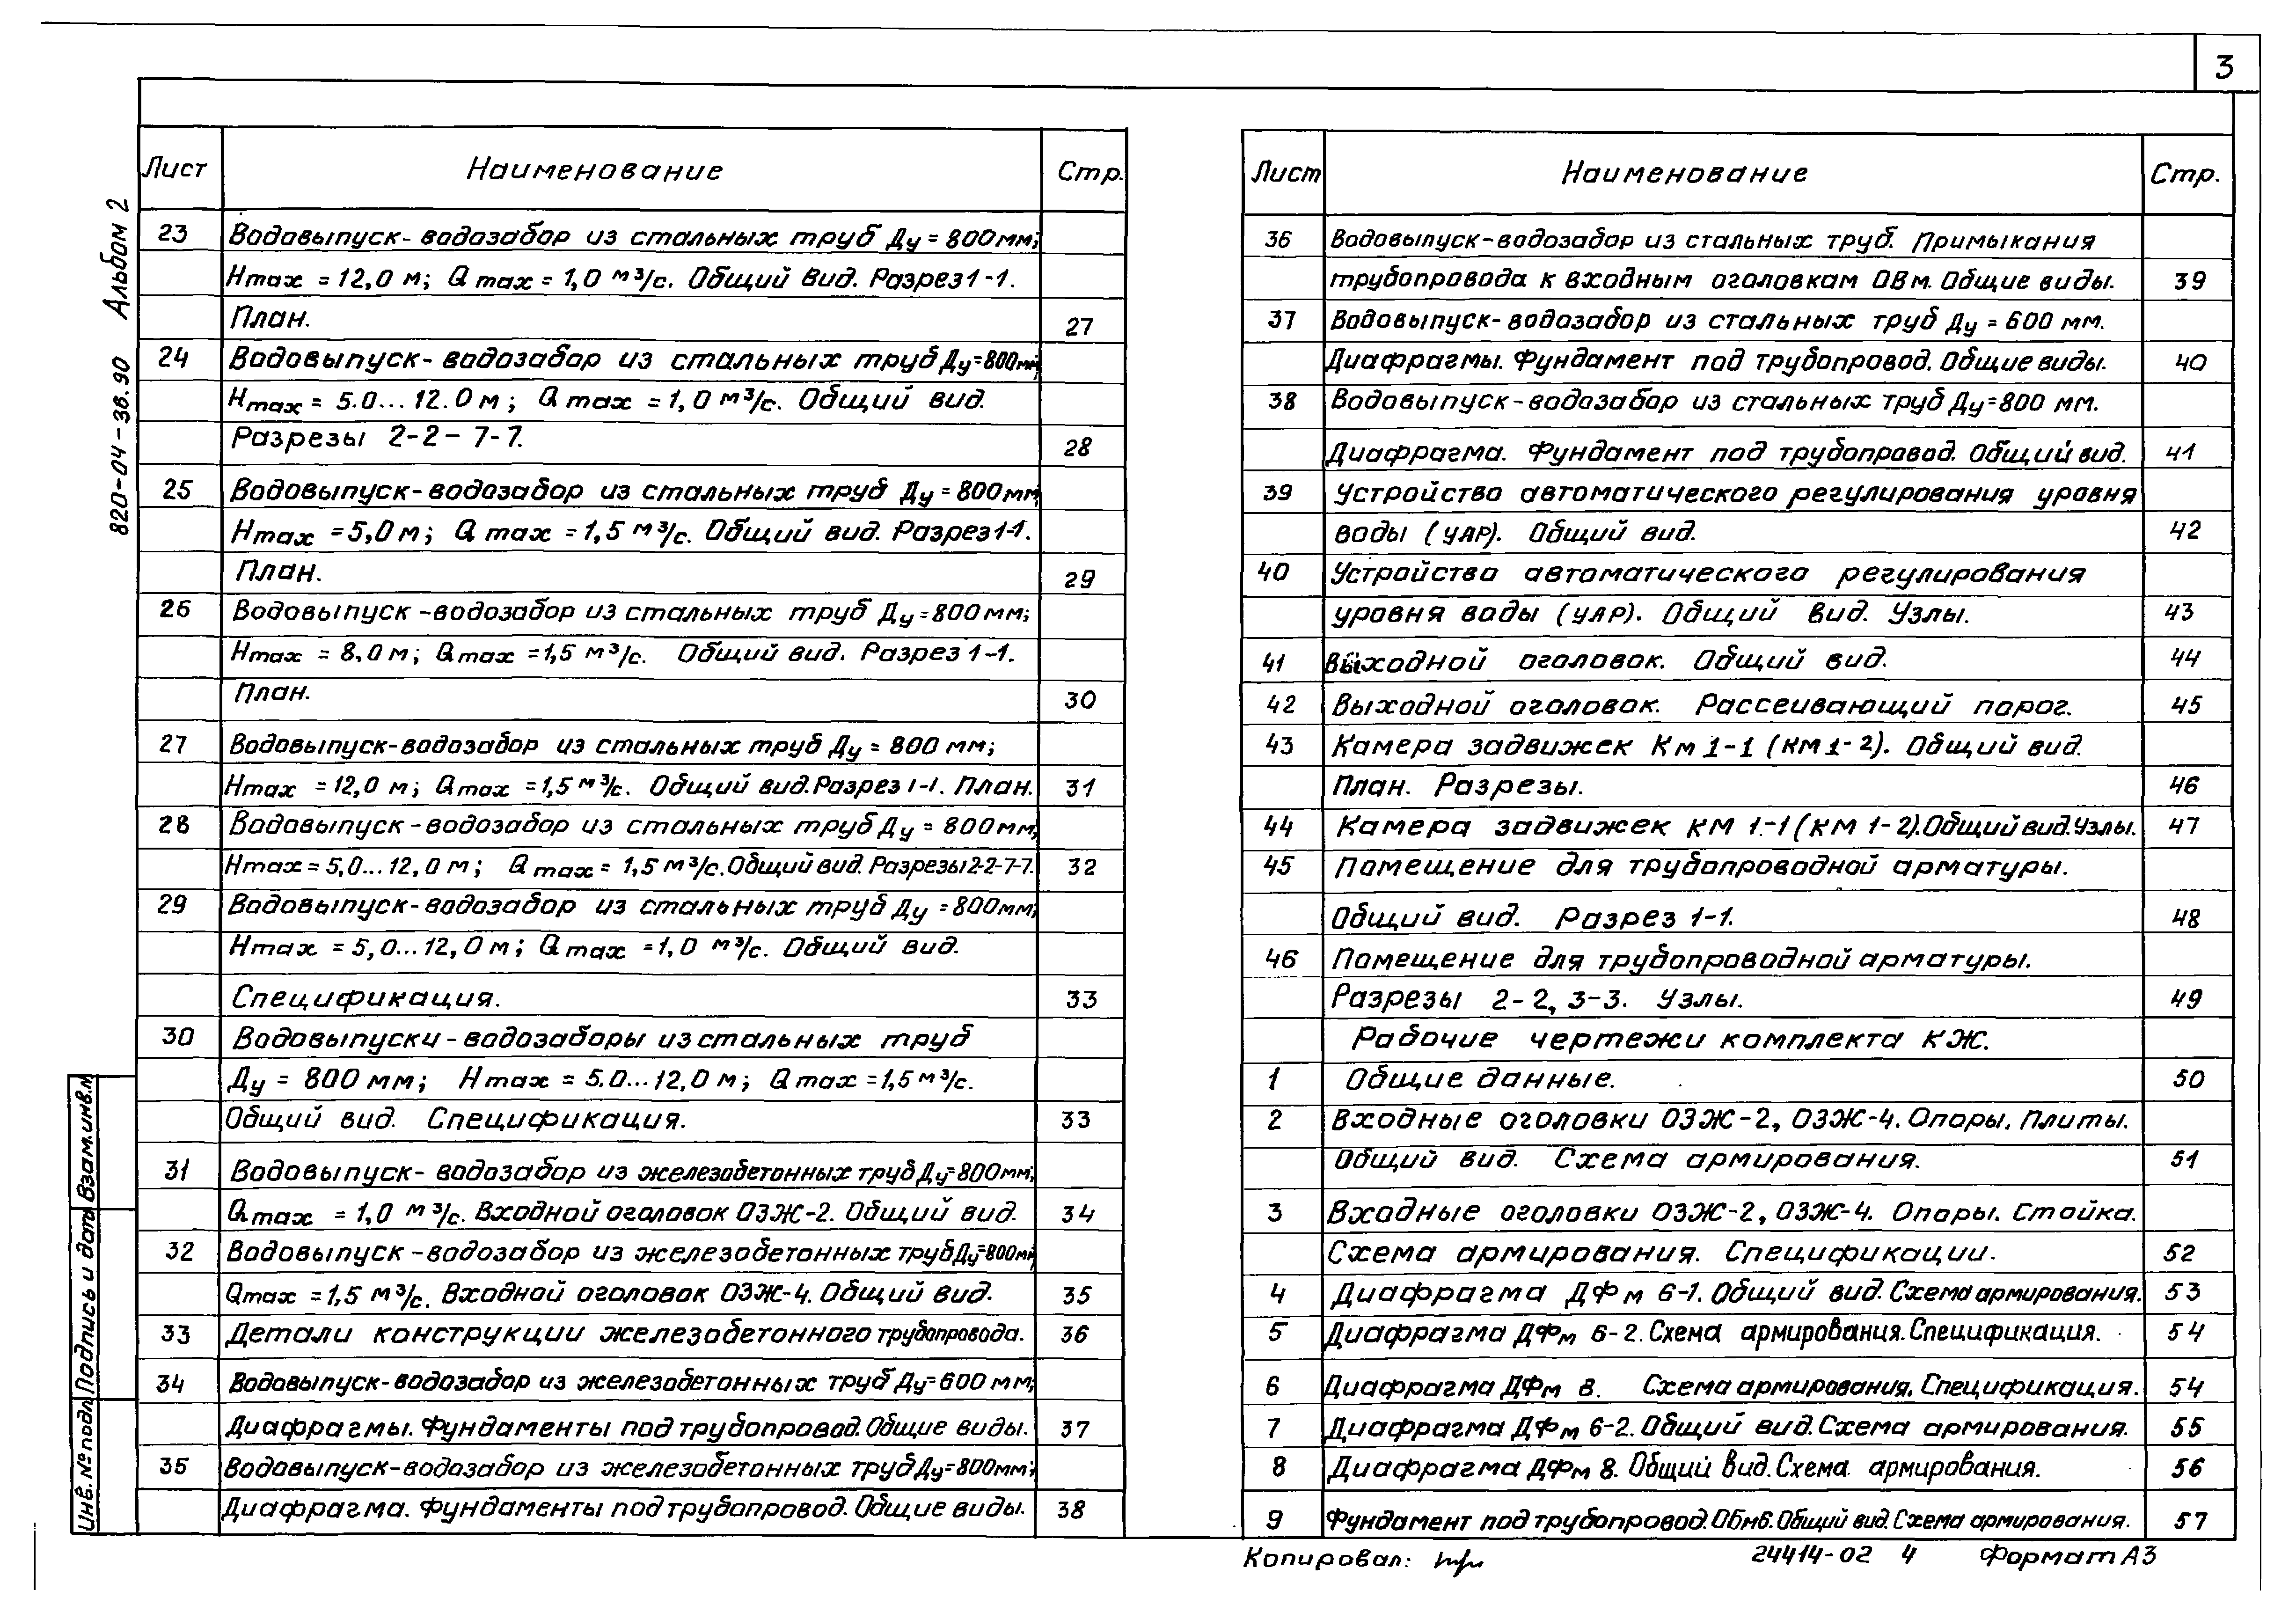 3
820-04-36.90 Альбом 2
Лист Наименование Стр.
23 Водовыпуск-водозабор из стальных труб Ду = 800 мм;
Hmax = 12,0 м; Q max = 1,0 м³/с. Общий вид. Разрез 1-1.
План. 27
24 Водовыпуск-водозабор из стальных труб Ду = 800 мм;
Hmax = 5.0... 12.0 м; Q max = 1,0 м³/с. Общий вид.
Разрезы 2-2 – 7-7. 28
25 Водовыпуск-водозабор из стальных труб Ду = 800 мм;
Hmax = 5,0 м; Q max = 1,5 м³/с. Общий вид. Разрез 1-1.
План. 29
26 Водовыпуск-водозабор из стальных труб Ду = 800 мм;
Hmax = 8,0 м; Qmax = 1,5 м³/с. Общий вид. Разрез 1-1.
План. 30
27 Водовыпуск-водозабор из стальных труб Ду = 800 мм;
Hmax = 12,0 м; Qmax = 1,5 м³/с. Общий вид. Разрез 1-1. План. 31
28 Водовыпуск-водозабор из стальных труб Ду = 800 мм;
Hmax = 5,0... 12,0 м; Q max = 1,5 м³/с. Общий вид. Разрезы 2-2-7-7. 32
29 Водовыпуск-водозабор из стальных труб Ду = 800 мм;
Hmax = 5,0...12,0 м; Q max = 1,0 м³/с. Общий вид.
Спецификация. 33
30 Водовыпуски-водозаборы из стальных труб
Ду = 800 мм; Hmax = 5.0...12,0 м; Qmax = 1,5 м³/с.
Общий вид. Спецификация. 33
31 Водовыпуск-водозабор из железобетонных труб Ду=800 мм;
Qmax = 1,0 м³/с. Входной оголовок ОЗЖ-2. Общий вид. 34
32 Водовыпуск-водозабор из железобетонных труб Ду=800 мм;
Qmax = 1,5 м³/с. Входной оголовок ОЗЖ-4. Общий вид. 35
33 Детали конструкции железобетонного трубопровода. 36
34 Водовыпуск-водозабор из железобетонных труб Ду=600 мм;
Диафрагмы. Фундаменты под трубопровод. Общие виды. 37
35 Водовыпуск-водозабор из железобетонных труб Ду=800 мм;
Диафрагма. Фундаменты под трубопровод. Общие виды. 38
Лист Наименование Стр.
36 Водовыпуск-водозабор из стальных труб. Примыкания
трубопровода к входным оголовкам ОВм. Общие виды. 39
37 Водовыпуск-водозабор из стальных труб Ду = 600 мм.
Диафрагмы. Фундамент под трубопровод. Общие виды. 40
38 Водовыпуск-водозабор из стальных труб Ду=800 мм.
Диафрагма. Фундамент под трубопровод. Общий вид. 41
39 Устройство автоматического регулирования уровня
воды (УАР). Общий вид. 42
40 Устройство автоматического регулирования
уровня воды (УАР). Общий вид. Узлы. 43
41 Выходной оголовок. Общий вид. 44
42 Выходной оголовок. Рассеивающий порог. 45
43 Камера задвижек Км 1-1 (КМ 1-2). Общий вид.
План. Разрезы. 46
44 Камера задвижек КМ 1-1 (КМ 1-2). Общий вид. Узлы. 47
45 Помещение для трубопроводной арматуры.
Общий вид. Разрез 1-1. 48
46 Помещение для трубопроводной арматуры.
Разрезы 2-2, 3-3. Узлы. 49
Рабочие чертежи комплекта КЖ.
1 Общие данные. 50
2 Входные оголовки ОЗЖ-2, ОЗЖ-4. Опоры. Плиты.
Общий вид. Схема армирования. 51
3 Входные оголовки ОЗЖ-2, ОЗЖ-4. Опоры. Стойка.
Схема армирования. Спецификации. 52
4 Диафрагма ДФм 6-1. Общий вид. Схема армирования. 53
5 Диафрагма ДФм 6-2. Схема армирования. Спецификация. 54
6 Диафрагма ДФм 8. Схема армирования. Спецификация. 54
7 Диафрагма ДФм 6-2. Общий вид. Схема армирования. 55
8 Диафрагма ДФм 8. Общий вид. Схема армирования. 56
9 Фундамент под трубопровод. Обм6. Общий вид. Схема армирования. 57
Инв. № подл Подпись и дата Взам. инв. №
Копировал: 24414-02 4 Формат А3